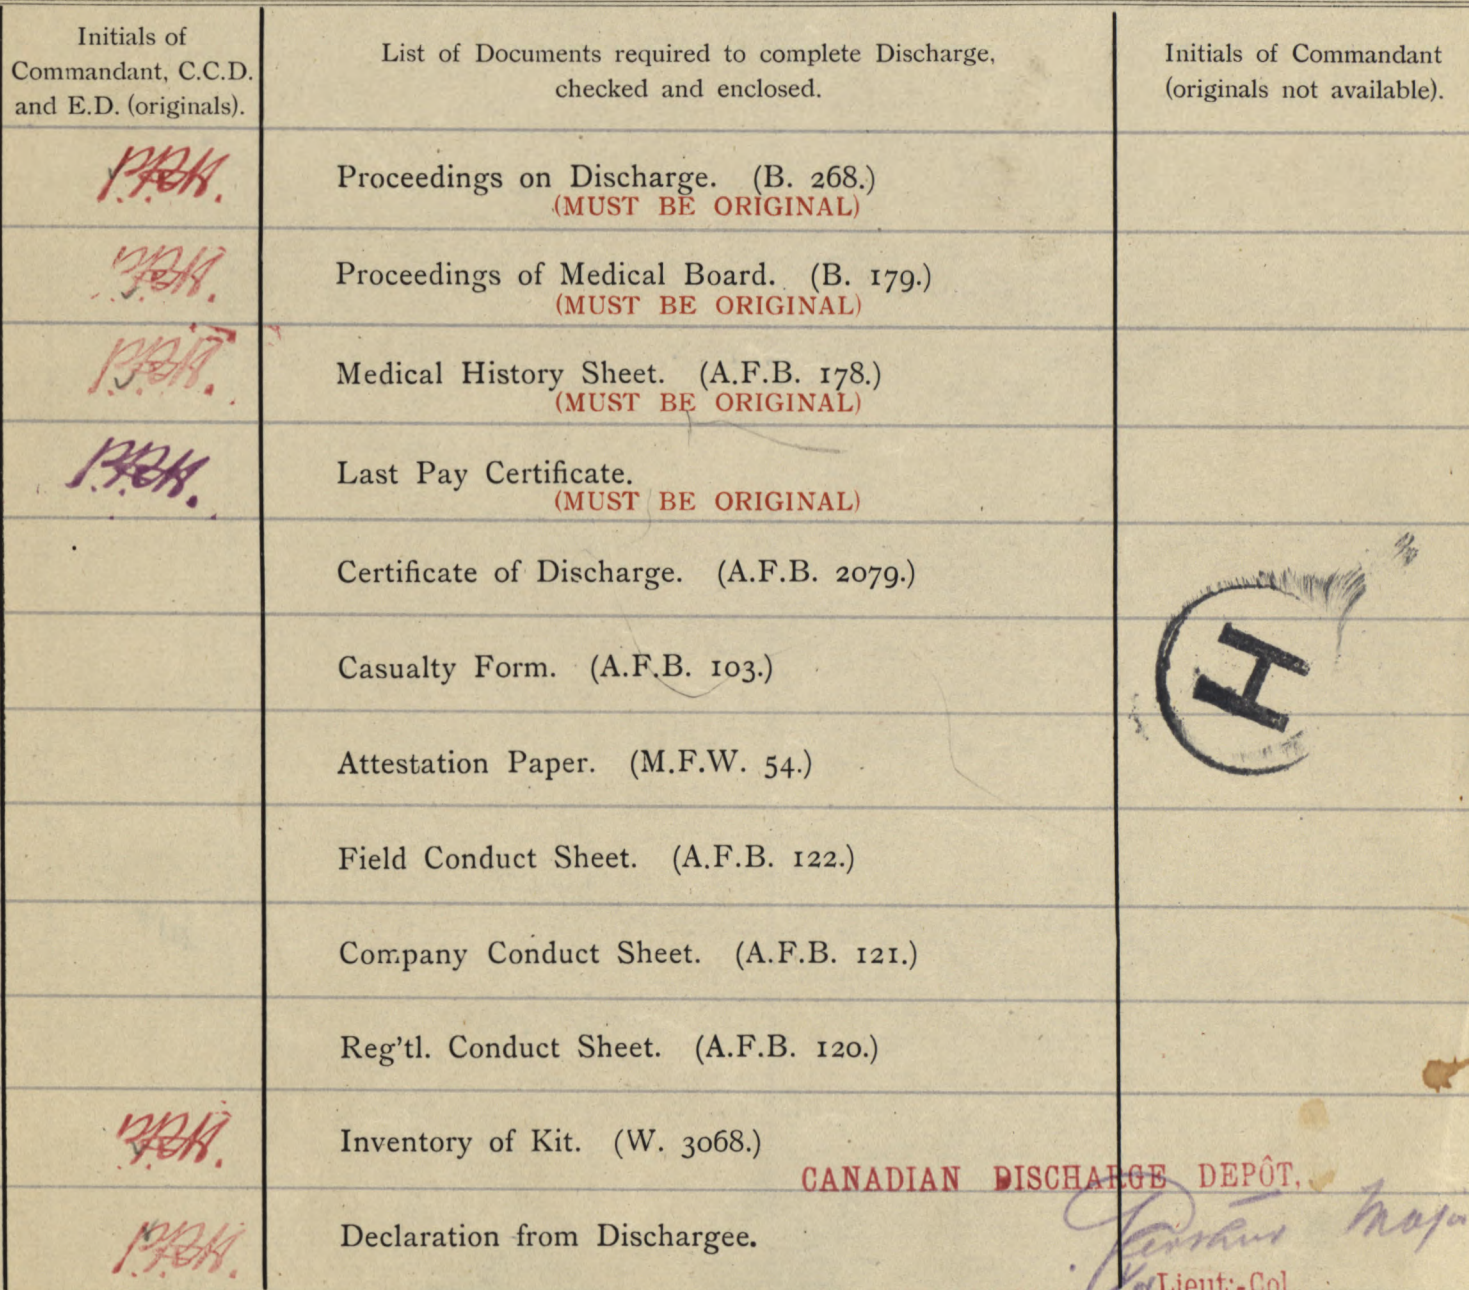 Initials of
Commandant, C.C.D.
and E.D. (originals).
List of Documents required to complete Discharge,
checked and enclosed.
Initials of Commandant
(originals not available).
Proceedings on Discharge. (B. 268.)
(MUST BE ORIGINAL)
Proceedings of Medical Board. (B. 179.)
(MUST BE ORIGINAL)
Medical History Sheet. (A.F.B. 178.)
(MUST BE ORIGINAL)
Last Pay Certificate.
(MUST BE ORIGINAL)
Certificate of Discharge. (A.F.B. 2079.)
Casualty Form. (A.F.B. 103.)
H
Attestation Paper. (M.F.W. 54.)
Field Conduct Sheet. (A.F.B. 122.)
Company Conduct Sheet. (A.F.B. 121.)
Reg'tl. Conduct Sheet. (A.F.B. 120.)
Inventory of Kit. (W. 3068.)
CANADIAN DISCHARGE DEPÔT,
Declaration from Dischargee.
Lieut:-Col